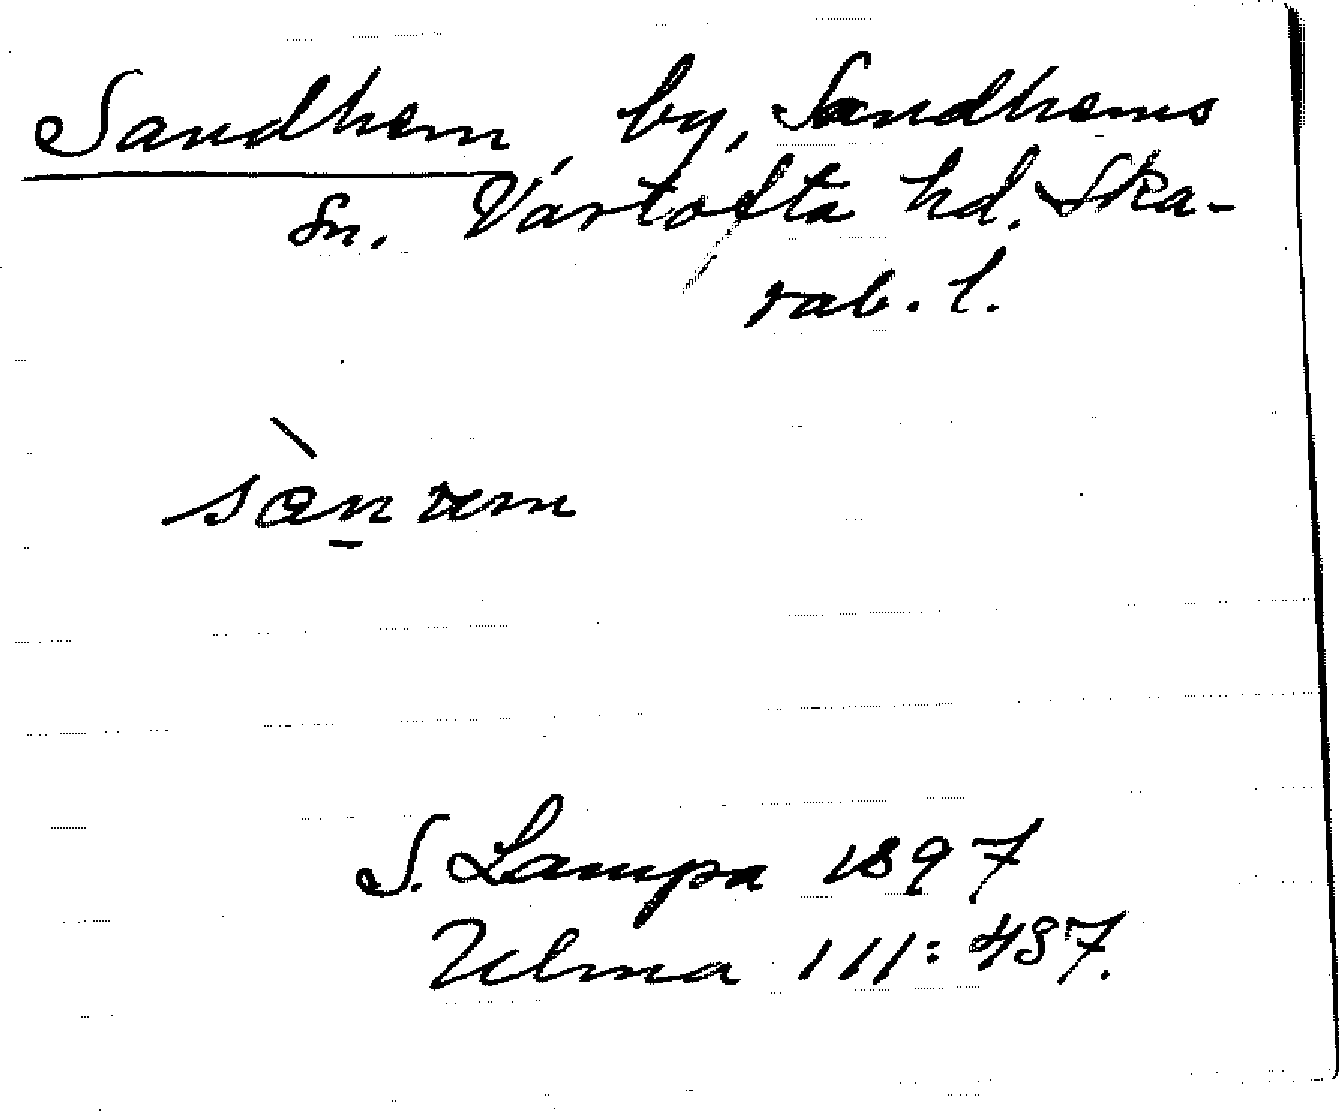 Sandhem, by, Sandhems
sn. Vartofta hd. Ska-
rab. l.
S. Lampa 1897
Ulma 111: 487.